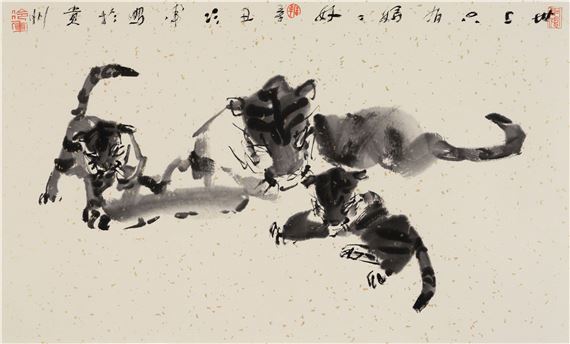 世上只有媽々好辛丑冷軍寫於貴州